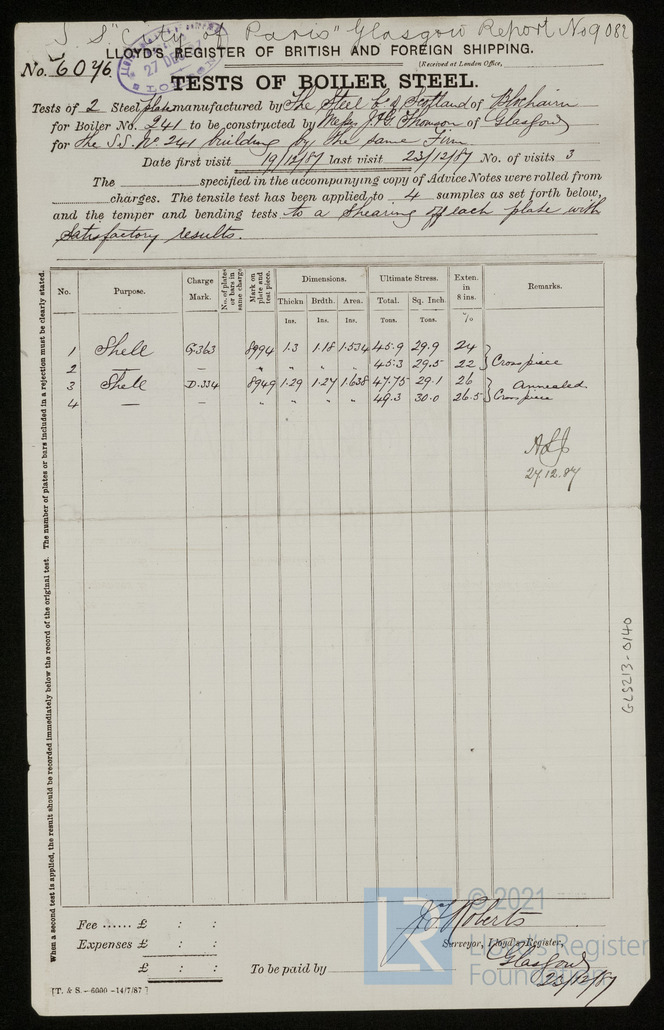 S S "City of Paris" Glasgow Report No 9082
LLOYD'S REGISTER OF BRITISH AND FOREIGN SHIPPING.
No. 6046
27 DEC 87
[Received at London Office,
TESTS OF BOILER STEEL.
Tests of 2 Steel plates manufactured by The Steel Co of Scotland of Blochairn
for Boiler No. 241 to be constructed by Messrs J. & G. Thomson of Glasgow
for the S.S. No 241 building by the same Firm
Date first visit 19/12/87 last visit 23/12/87 No. of visits 3
The specified in the accompanying copy of Advice Notes were rolled from
charges. The tensile test has been applied to 4 samples as set forth below,
and the temper and bending tests to a shearing off each plate with
satisfactory results.
No. Purpose. Charge Mark. No. of plates or bars in same charge Mark on plate and test piece. Dimensions. Ultimate Stress. Exten. in 8 ins. Remarks.
Thickn Brdth. Area. Total. Sq. Inch.
Ins. Ins. Ins. Tons. Tons. %
1 Shell G.363 8994 1.3 1.18 1.534 45.9 29.9 24
2 — — " " " " 45.3 29.5 22 } Cross piece
3 Shell D.334 8949 1.29 1.27 1.638 47.75 29.1 26 Annealed
4 — — " " " " 49.3 30.0 26.5 } Cross piece
27.12.87
When a second test is applied, the result should be recorded immediately below the record of the original test. The number of plates or bars included in a rejection must be clearly stated.
GLS213-0140
Fee ...... £ : :
Expenses £ : :
£ : :
To be paid by
J. Roberts
Surveyor, Lloyd's Register,
Glasgow
23/12/87
[T. & S. – 6000 – 14/7/87]
LR
© 2021
Lloyd's Register
Foundation